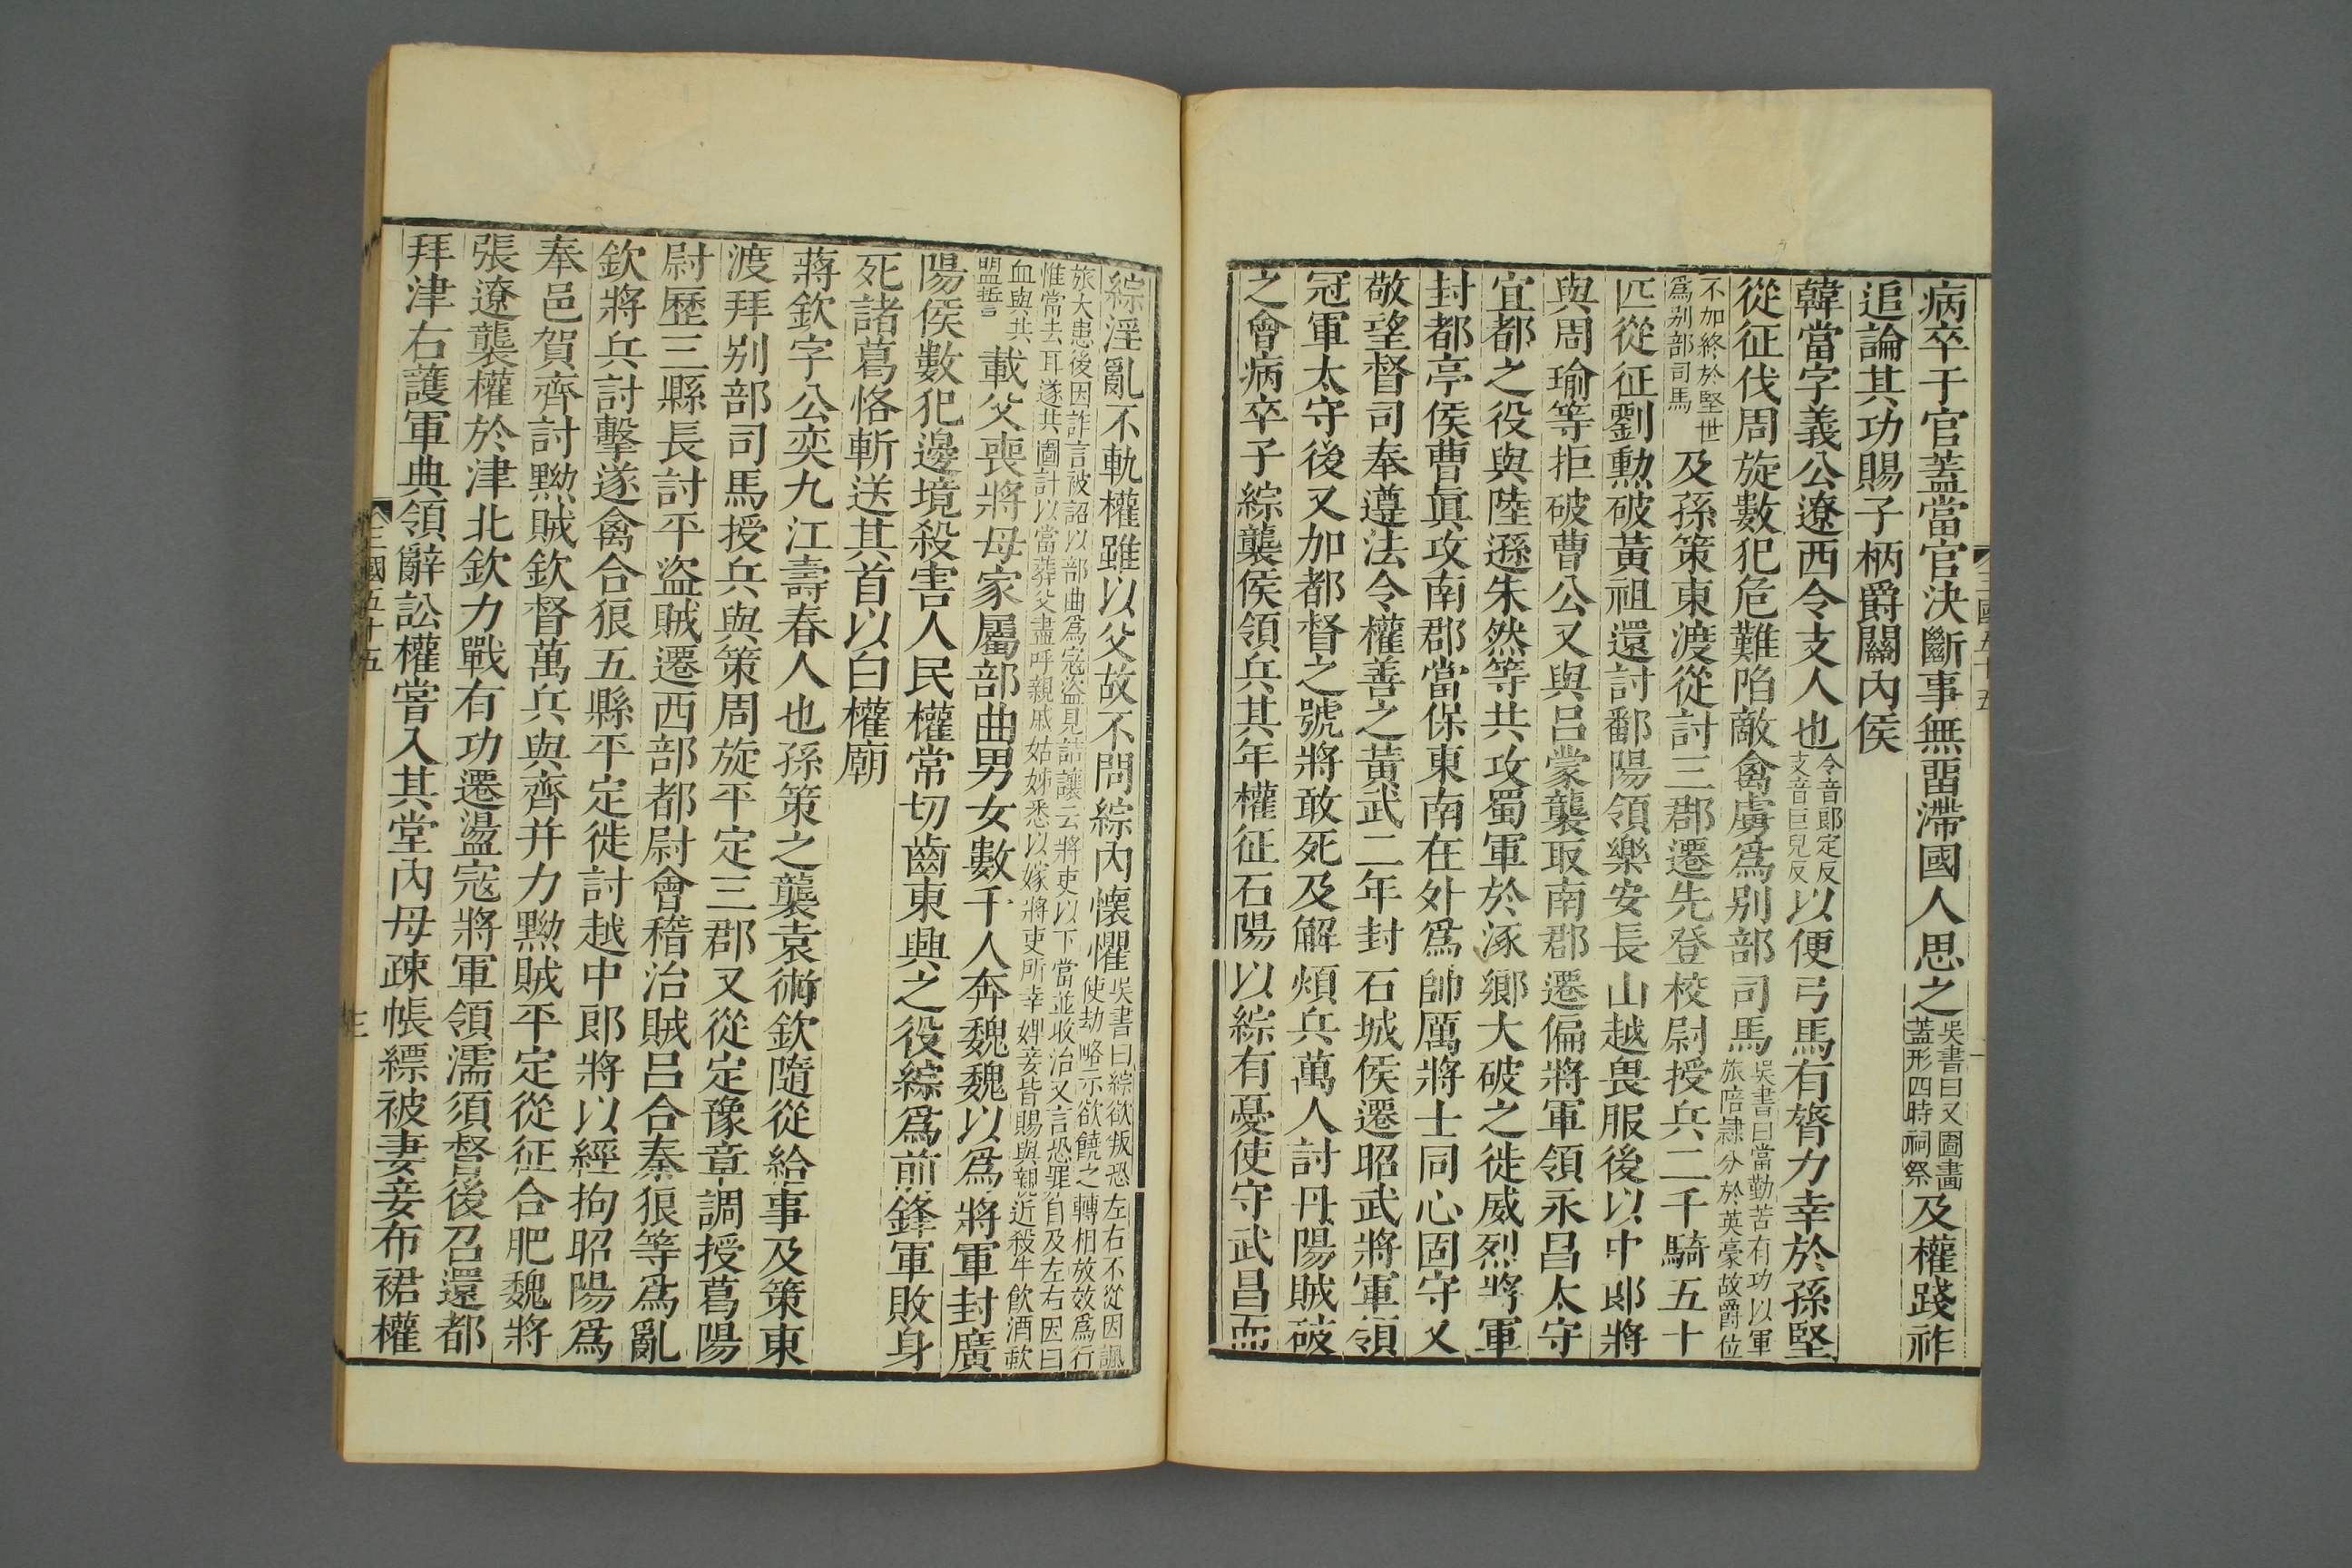 病卒于官蓋當官決斷事無畱滯國人思之吳書曰又圖畫蓋形四時祠祭及權踐祚
追論其功賜子柄爵關內侯
韓當字義公遼西令支人也令音郎定反支音巨兒反以便弓馬有膂力幸於孫堅
從征伐周旋數犯危難陷敵禽虜爲別部司馬吳書曰當勤苦有功以軍旅陪隷分於英豪故爵位
不加終於堅世爲別部司馬及孫策東渡從討三郡遷先登校尉授兵二千騎五十
匹從征劉勳破黃祖還討鄱陽領樂安長山越畏服後以中郎將
與周瑜等拒破曹公又與呂蒙襲取南郡遷偏將軍領永昌太守
宜都之役與陸遜朱然等共攻蜀軍於涿鄉大破之徙威烈將軍
封都亭侯曹眞攻南郡當保東南在外爲帥厲將士同心固守又
敬望督司奉遵法令權善之黃武二年封石城侯遷昭武將軍領
冠軍太守後又加都督之號將敢死及解煩兵萬人討丹陽賊破
之會病卒子綜襲侯領兵其年權征石陽以綜有憂使守武昌而
綜淫亂不軌權雖以父故不問綜內懷懼吳書曰綜欲叛恐左右不從因諷使劫略示欲饒之轉相放效爲行
旅大患後因詐言被詔以部曲爲寇盜見詰讓云將吏以下當並收治又言恐罪自及左右因曰
惟當去耳遂共圖計以當葬父盡呼親戚姑姊悉以嫁將吏所幸婢妾皆賜與親近殺牛飲酒歃
血與共盟誓載父喪將母家屬部曲男女數千人奔魏魏以爲將軍封廣
陽侯數犯邊境殺害人民權常切齒東興之役綜爲前鋒軍敗身
死諸葛恪斬送其首以白權廟
蔣欽字公奕九江壽春人也孫策之襲袁術欽隨從給事及策東
渡拜別部司馬授兵與策周旋平定三郡又從定豫章調授葛陽
尉歷三縣長討平盜賊遷西部都尉會稽治賊呂合秦狼等爲亂
欽將兵討擊遂禽合狼五縣平定徙討越中郎將以經拘昭陽爲
奉邑賀齊討黟賊欽督萬兵與齊并力黟賊平定從征合肥魏將
張遼襲權於津北欽力戰有功遷盪寇將軍領濡須督後召還都
拜津右護軍典領辭訟權嘗入其堂內母疎帳縹被妻妾布裙權
三國五十五
三